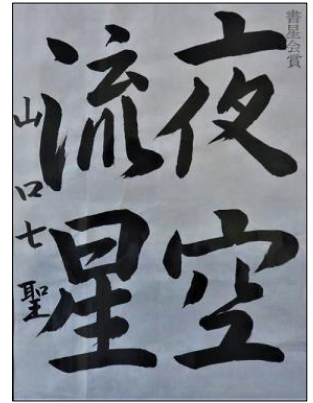 書星会賞
夜空
流星
山口七聖